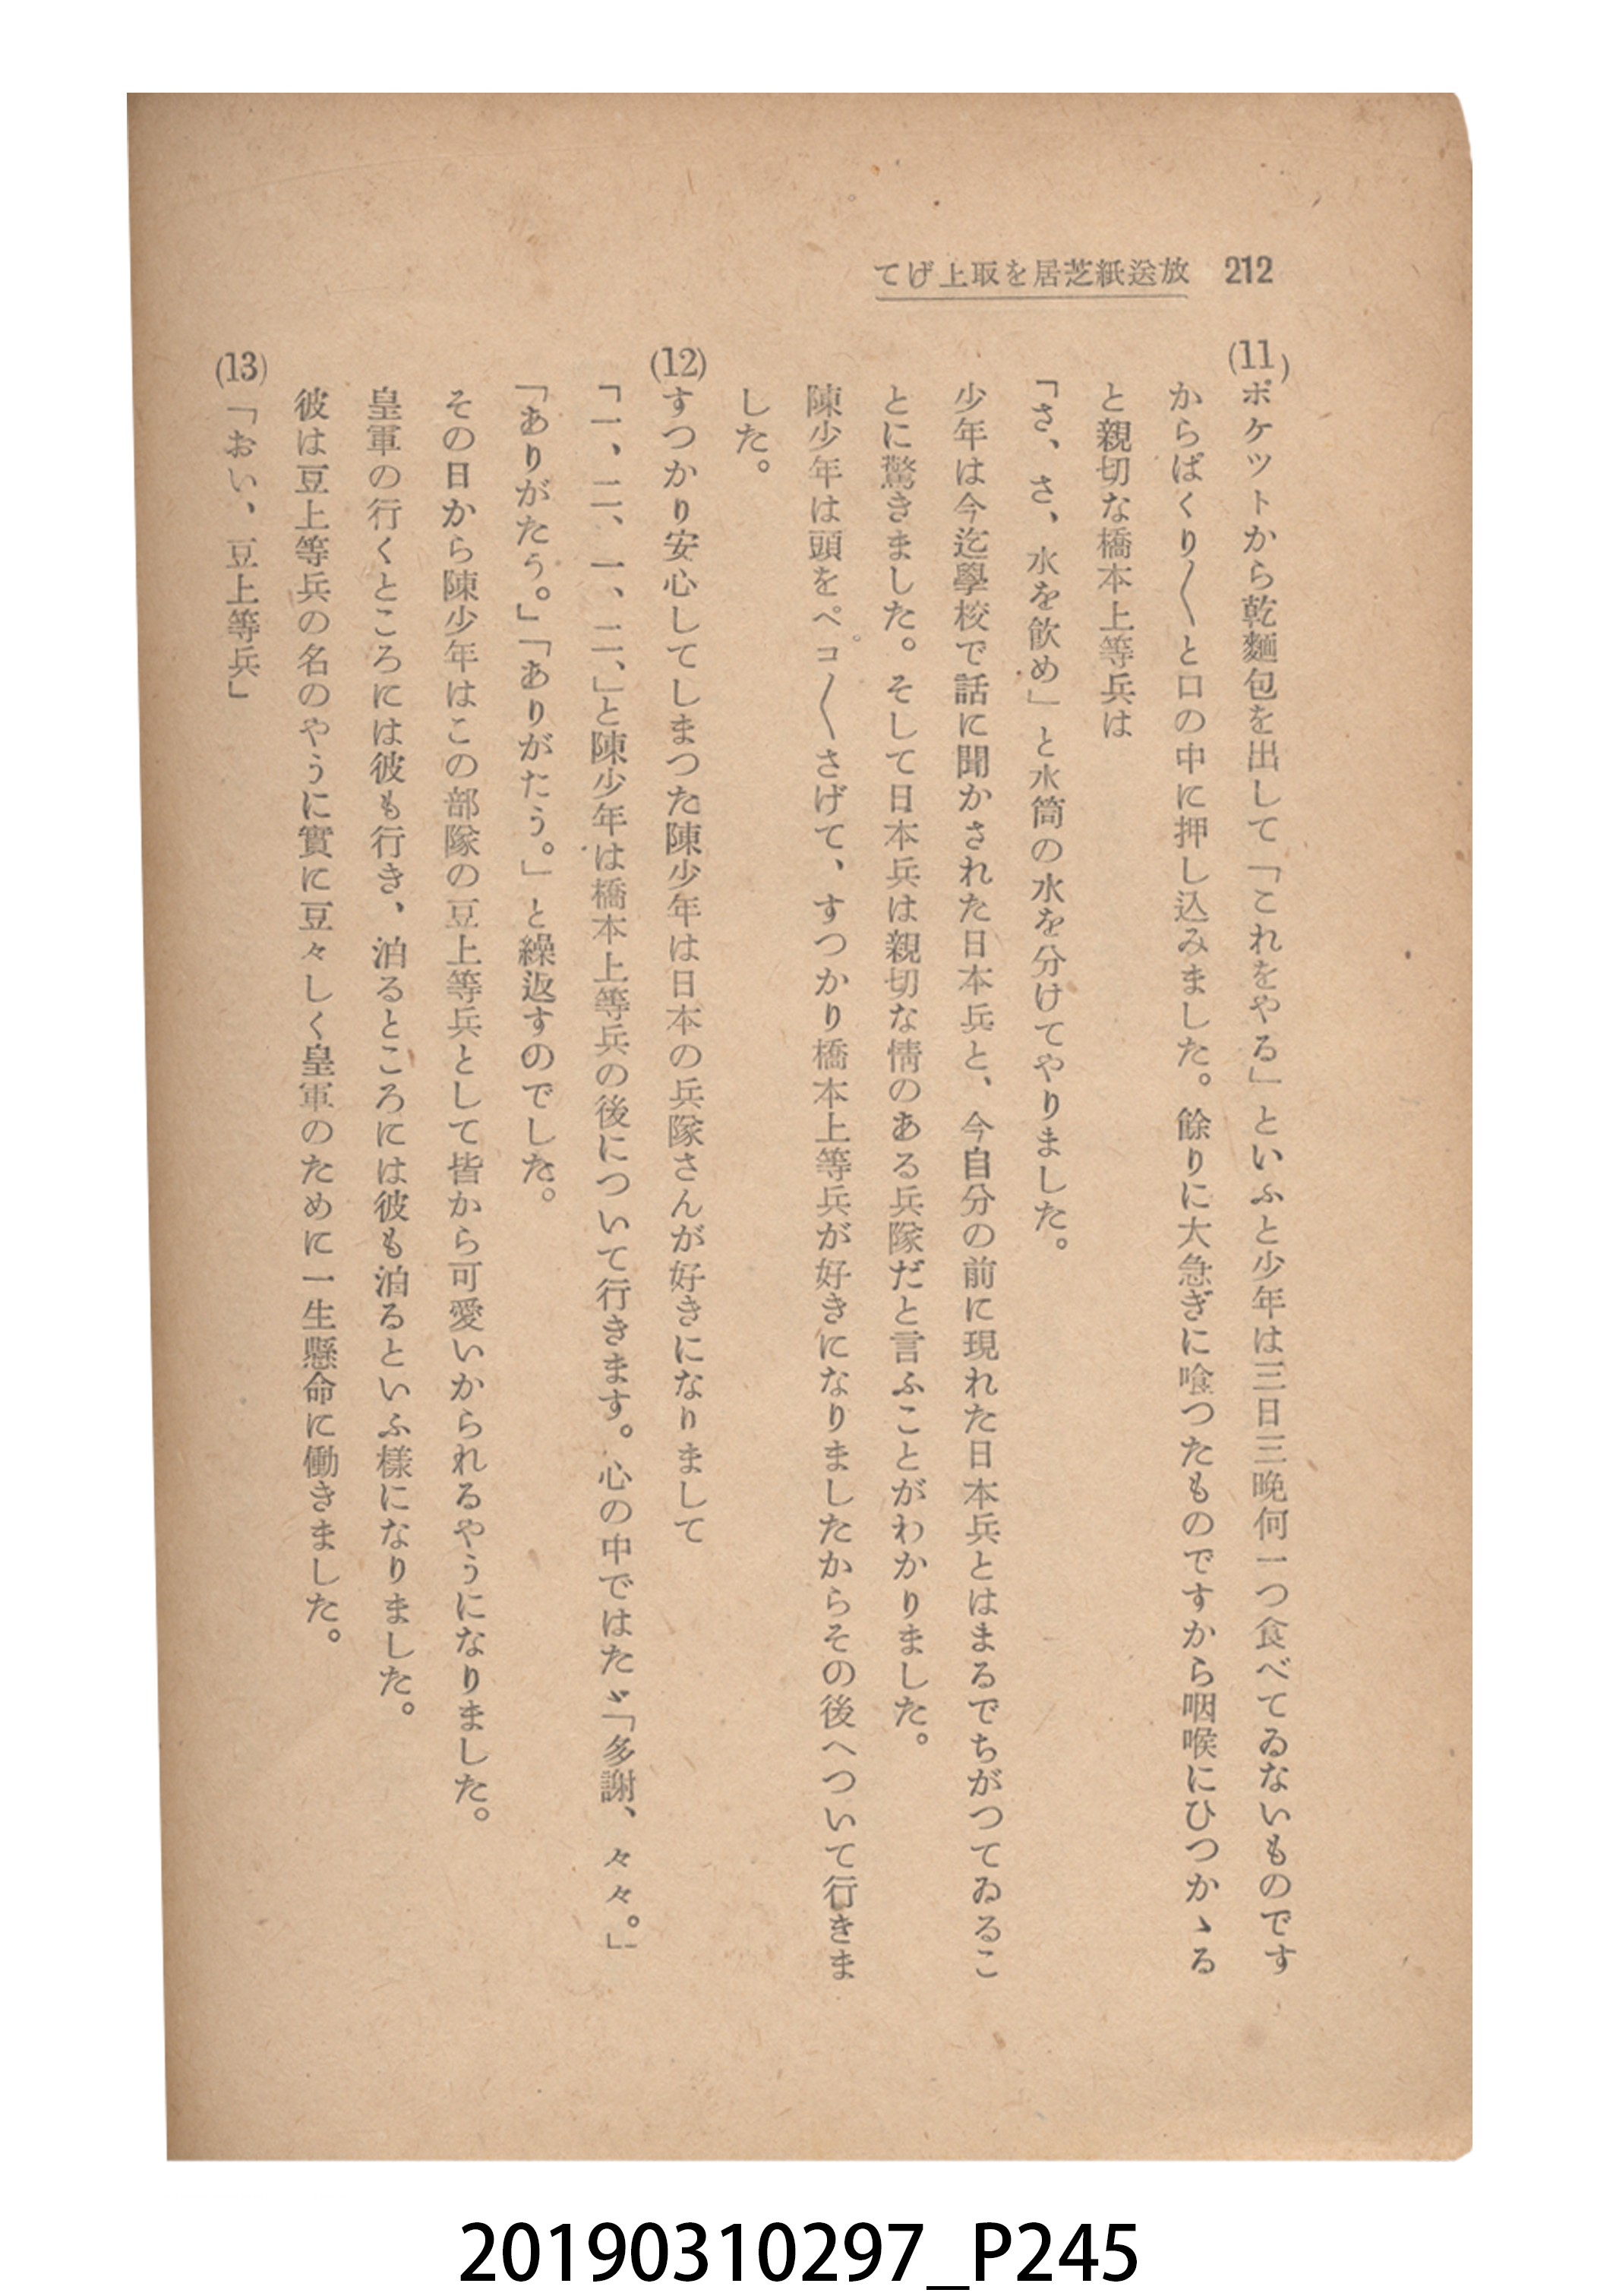 212 放送紙芝居を取上げて
(11) ポケツトから乾麵包を出して「これをやる」といふと少年は三日三晩何一つ食べてゐないものです
からぱくり〱と口の中に押し込みました。餘りに大急ぎに喰つたものですから咽喉にひつかゝる
と親切な橋本上等兵は
「さ、さ、水を飲め」と水筒の水を分けてやりました。
少年は今迄學校で話に聞かされた日本兵と、今自分の前に現れた日本兵とはまるでちがつてゐるこ
とに驚きました。そして日本兵は親切な情のある兵隊だと言ふことがわかりました。
陳少年は頭をペコ〱さげて、すつかり橋本上等兵が好きになりましたからその後へついて行きま
した。
(12) すつかり安心してしまつた陳少年は日本の兵隊さんが好きになりまして
「一、二、一、二、」と陳少年は橋本上等兵の後について行きます。心の中ではたゞ「多謝、々々。」
「ありがたう。」「ありがたう。」と繰返すのでした。
その日から陳少年はこの部隊の豆上等兵として皆から可愛いかられるやうになりました。
皇軍の行くところには彼も行き、泊るところには彼も泊るといふ様になりました。
彼は豆上等兵の名のやうに實に豆々しく皇軍のために一生懸命に働きました。
(13) 「おい、豆上等兵」
20190310297_P245